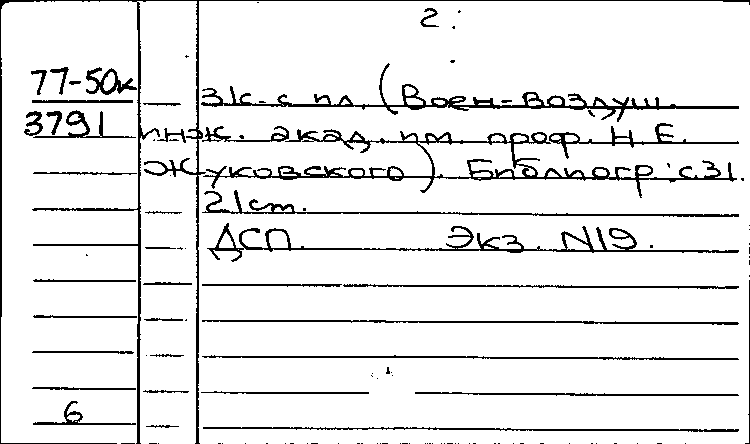 2.
77-50к
3791
31с. с пл. (Воен-воздуш.
инж. акад. им. проф. Н. Е.
Жуковского). Библиогр.: с.31.
21см.
ДСП. Экз. N19.
6